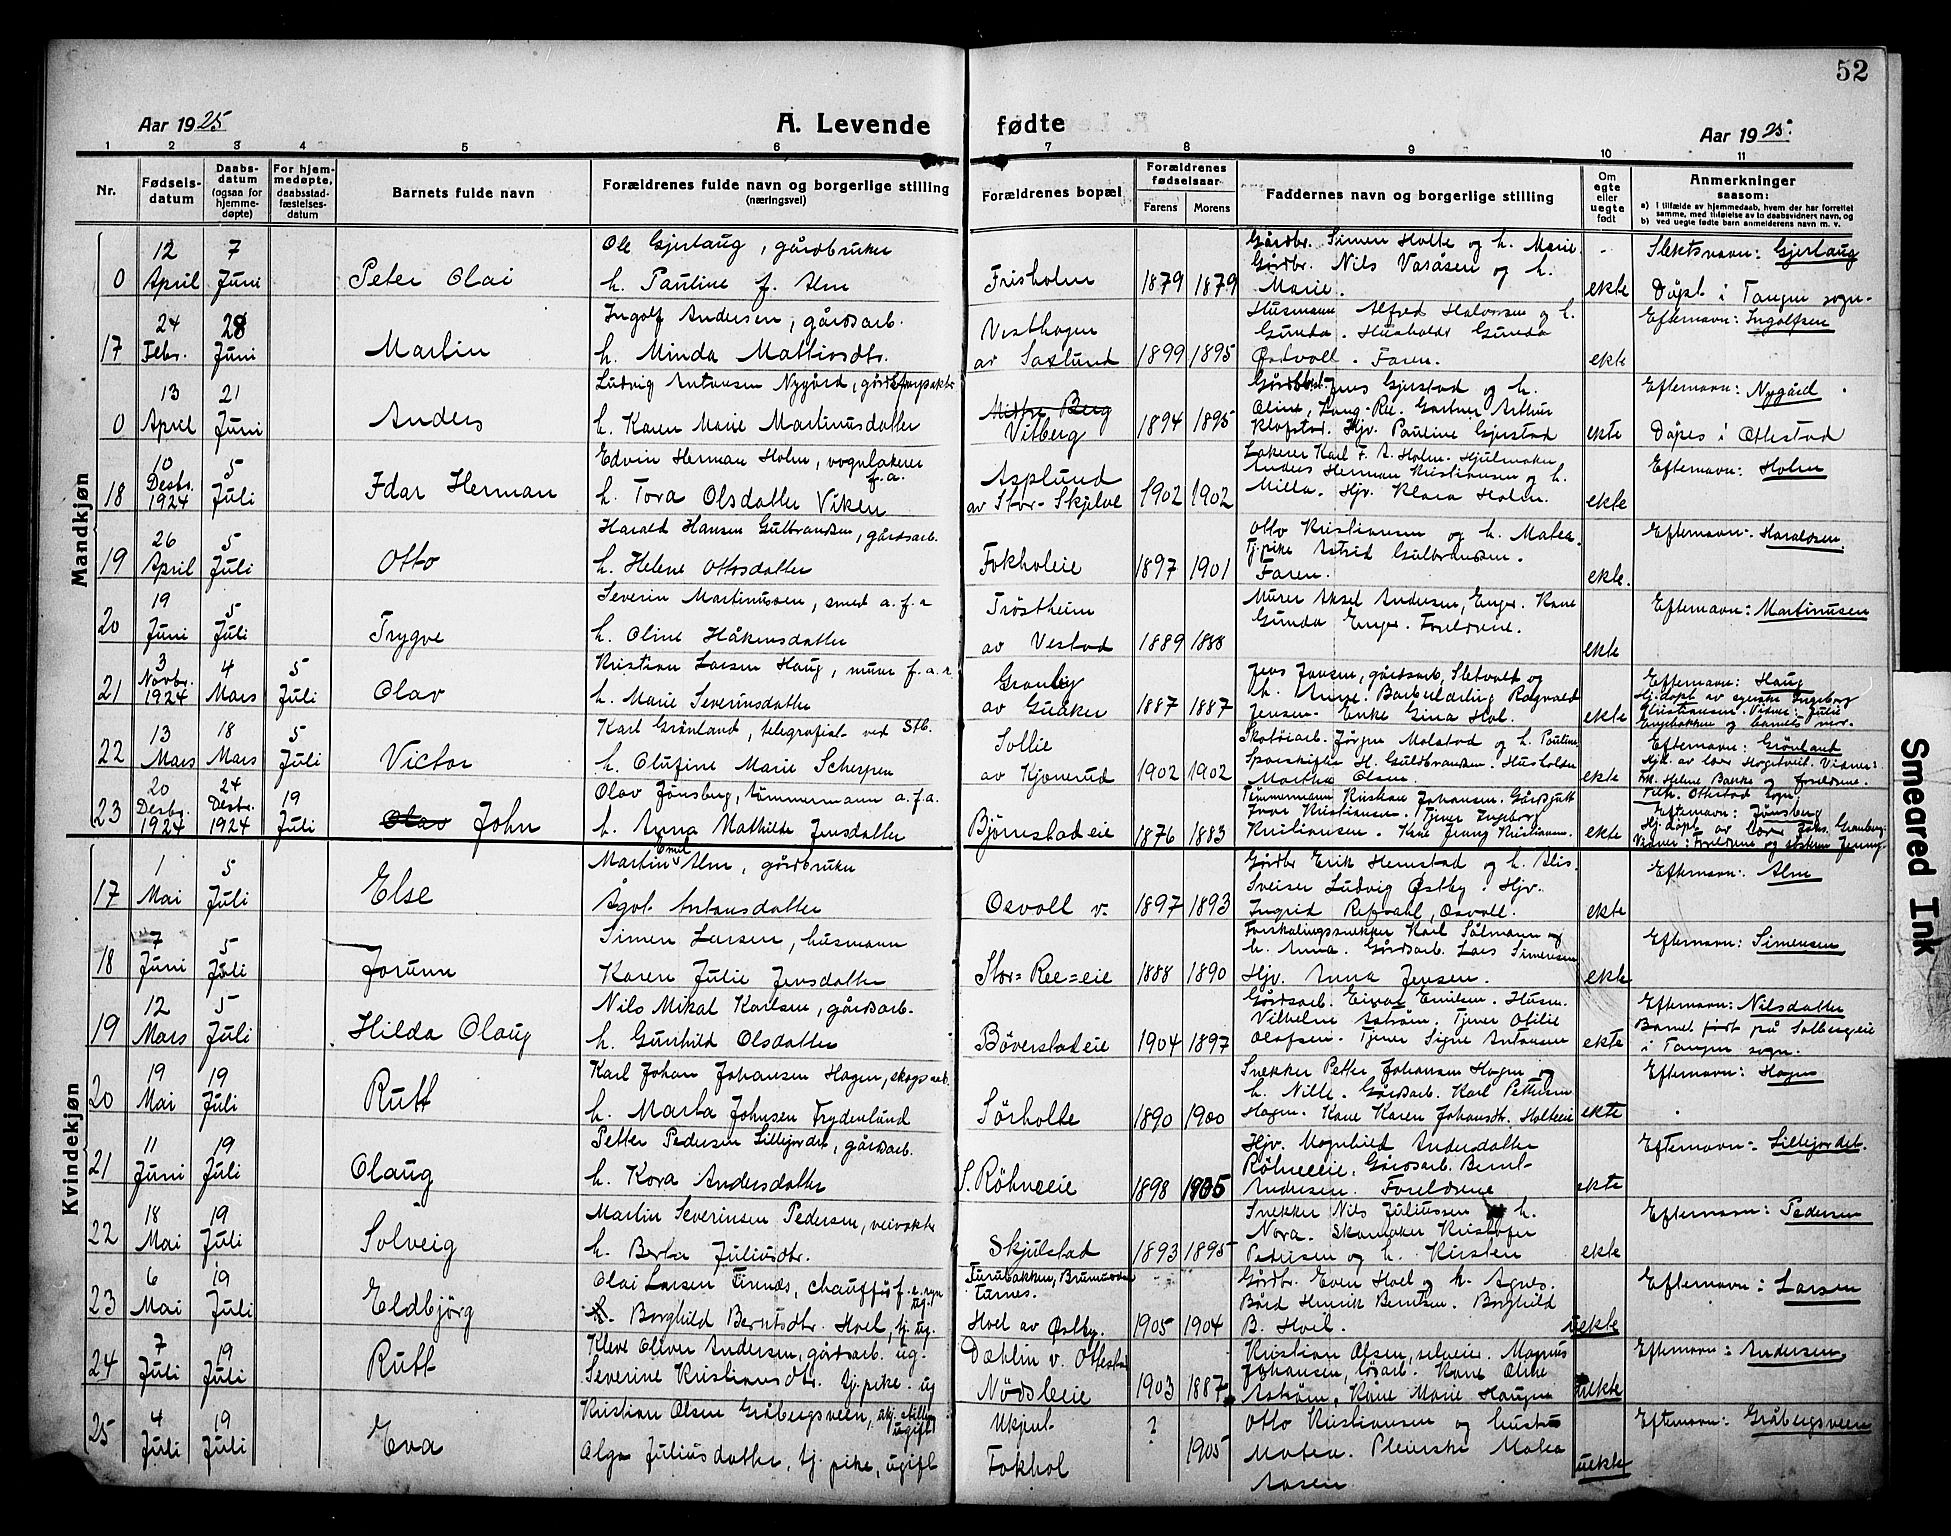 52
Aar 1925
A. Levende
fødte
Aar 1925.
1 2 3 4 5 6 7 8 9 10 11
Nr.
Fødsels-
datum
Daabs-
datum
(ogsaa for
hjemme-
døpte)
For hjem-
medøpte,
daabsstad-
fæstelses-
datum
Barnets fulde navn
Forældrenes fulde navn og borgerlige stilling
(næringsvei)
Forældrenes bopæl
Forældrenes
fødselsaar
Farens Morens
Faddernes navn og borgerlige stilling
Om
egte
eller
uegte
født
Anmerkninger
saasom:
a) i tilfælde av hjemmedaab, hvem der har forrettet
samme, med tilføielse av to daabsvidners navn, og
b) ved uegte fødte barn anmelderens navn m. v.
Mandkjøn
0 12 April 7 Juni Peter Olai
Ole Gjerlaug, gårdbruker
h. Pauline f. Alm
Frisholm 1879 1879
Gårdbr. Simen Holte og h. Marie
Gårdbr. Nils Varåsen og h.
Marie.
ekte
Slektsnavn: Gjerlaug
Døpt i Tangen sogn.
17 24 Febr. 28 Juni Martin
Ingolf Andersen, gårdsarb.
h. Minda Mathisdtr.
Vesthagen
av Saxlund 1899 1895
Husmann Alfred Halvorsen og h.
Gunda. Hushold. Gunda
Østvoll. Faren.
ekte
Efternavn: Ingolfsen
0 13 April 21 Juni Anders
Ludvig Antonsen Nygård, gårdsforpakter
h. Karen Marie Martinusdatter
Vitberg 1894 1895
Jens Gjerstad og h.
Oline, Lang-Ree. Gartner Arthur
Klafstad. Hjv. Pauline Gjerstad
ekte
Efternavn: Nygård
Døpes i Ottestad
18 10 Desbr. 1924 5 Juli Idar Herman
Edvin Herman Holm, vognlakerer
f.a.
h. Tora Olsdatter Viken
Asplund
av Stor-Skjelve 1902 1902
Lakerer Karl F. A. Holm. Hjulmaker
Anders Herman Kristiansen og h.
Milla. Hjv. Klara Holm.
ekte
Efternavn: Holm
19 26 April 5 Juli Otto
Harald Hansen Gulbrandsen, gårdsarb.
h. Helene Ottosdatter
Fokholeie 1897 1901
Otto Kristiansen og h. Matea.
Tj.pike Astrid Gulbrandsen.
Faren.
ekte.
Efternavn: Haraldsen.
20 19 Juni 5 Juli Trygve
Severin Martinussen, smed a.f.a
h. Oline Håkensdatter
Trøstheim
av Vestad 1889 1888
Murer Aksel Andersen, Enger. Kone
Gunda Enger. Foreldrene.
ekte
Efternavn: Martinusen
21 3 Novbr. 1924 4 Mars 5 Juli Olav
Kristian Larsen Haug, murer f.a.a
h. Marie Severinsdatter
Granly
av Guåker 1887 1887
Jens Jensen, gårdsarb, Sletvold og
h. Anne. Barberlærling Ragnvald
Jensen. Enke Gina Hol.
ekte
Efternavn: Haug
Hj.døpt av Ingeborg
Christiansen. Vidner: Julie
Engebakken og barnets mor.
22 13 Mars 18 Mars 5 Juli Victor
Karl Grønland, telegrafist ved Stb.
h. Olufine Marie Schespen
Sollie
av Kjonerud 1902 1902
Skotøiarb. Jørgen Molstad og h. Pauline
H. Guldbrandsen. Husholder
Martha Olsen.
ekte
Efternavn: Grønland
Hj.d. av lærer Høgetveit. Vidner:
Frk. Helene Bakke og foreldrene.
Tilh. Ottestad Sogn
23 20 Desbr. 1924 24 Desbr. 1924 19 Juli Olav John
Olav Jønsberg, tømmermann a.f.a.
h. Anna Mathilde Jensdatter
Bjørnstadeie 1876 1883
Tømmermann Kristian Johansen. Gårdsgutt
Ivar Kristiansen. Tjener Ingeborg
Kristiansen. Kone Jenny Kristiansen.
ekte
Efternavn: Jønsberg
Hj.døpt av lærer Johs. Granberg.
Vidner: Foreldrene og søsteren Jenny.
Kvindekjøn
17 1 Mai 5 Juli Else
Martin Emil Alm, gårdbruker
Ågot Antonsdatter
Osvoll v. 1897 1893
Gårdbr Erik Hemstad og h. Alis
Sveiser Ludvig Østby. Hjv.
Ingrid Refvahl, Osvoll.
ekte
Efternavn: Alm
18 7 Juni 5 Juli Jorunn
Simen Larsen, husmann
Karen Julie Jensdatter
Stor=Ree=eie 1888 1890
Forskalingssnekker Karl Sålmann og
h. Anna. Gårdsarb. Lars Simensen
Hjv. Anna Jensen.
ekte
Efternavn: Simensen
19 12 Mars 5 Juli Hilda Olaug
Nils Mikal Karlsen, gårdsarb.
h. Gunhild Olsdatter
Bøverstadeie 1904 1897
Gårdsarb. Einar Emilsen. Husm.
Vilhelm Åstrøm. Tjener Otilie
Olafsen. Tjener Signe Antonsen
ekte
Efternavn: Nilsdatter
Barnet født på Solbergeie
i Tangen sogn.
20 19 Mai 19 Juli Rutt
Karl Johan Johansen Hagen, skogsarb.
h. Marta Johnsen Frydenlund
Sørholte 1890 1900
Snekker Petter Johansen Hagen og
h. Nille. Gårdsarb. Karl Pettersen
Hagen. Kone Karen Johansdtr. Holteeie
ekte
Efternavn: Hagen
21 11 Juni 19 Juli Olaug
Petter Pedersen Lillejordet, gårdsarb.
h. Kora Andersdatter
S. Røhneeie 1898 1905
Hjv. Magnhild Andersdatter
Røhneeie. Gårdsarb. Bernt
Andersen. Foreldrene
ekte
Efternavn: Lillejordet.
22 18 Mai 19 Juli Solveig
Martin Severinsen Pedersen, veivokter
h. Berta Juliusdtr.
Skjulstad 1893 1895
Snekker Nils Juliussen og h.
Nora. Skomaker Kristofer
Pedersen og h. Kirsten
ekte
Efternavn: Pedersen
23 6 Mai 19 Juli Eldbjörg
Olai Larsen Furnes, chauffør
Borghild Berntsdtr. Hoel, tj. ug.
Furubakken, Brumunddal
Furnes.
Hoel av Østby. 1905 1904
Gårdbr. Even Hoel og h. Agnes.
Bård Henrik Berntsen. Borghild
B. Hoel.
uekte
Efternavn: Larsen
24 7 Juli 19 Juli Rutt
Kleve Oliver Andersen, gårdsarb. ug.
Severine Kristiansdtr. tj.pike. ug
Dæhlin v. Ottestad
Nødsleeie 1903 1887
Kristian Olsen, selveier. Magnus
Johansen, løsarb. Kone Oline
Åstrøm, Kone Marie Haugen
uekte
Efternavn: Andersen,
25 4 Juli 19 Juli Eva
Kristian Olsen Gråbergsveen,
ugift
Alga Juliusdatter, tj.pike, ugift
Ukjent
Fokhol ? 1905
Otto Kristiansen og hustru
Matea. Pleierske Matea
Aasen
uekte
Efternavn: Gråbergsveen
Smeared Ink